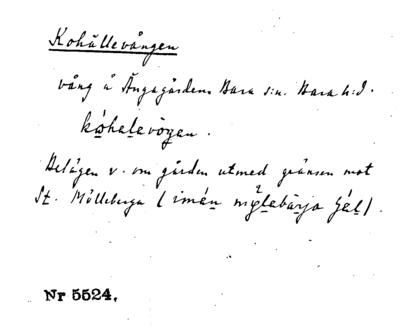 Kohällevången
vång å Ängagården Bara s:n. Bara h:d.
kóhalevóŋen.
Belägen v. om gården utmed gränsen mot
St. Mölleberga (imán mǫ̈lebärja ).
Nr 5524.